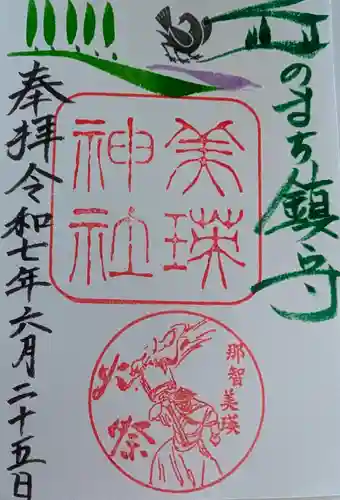 丘のまち鎮守
美瑛
神社
奉拝令和七年六月二十五日
那智美瑛
火祭